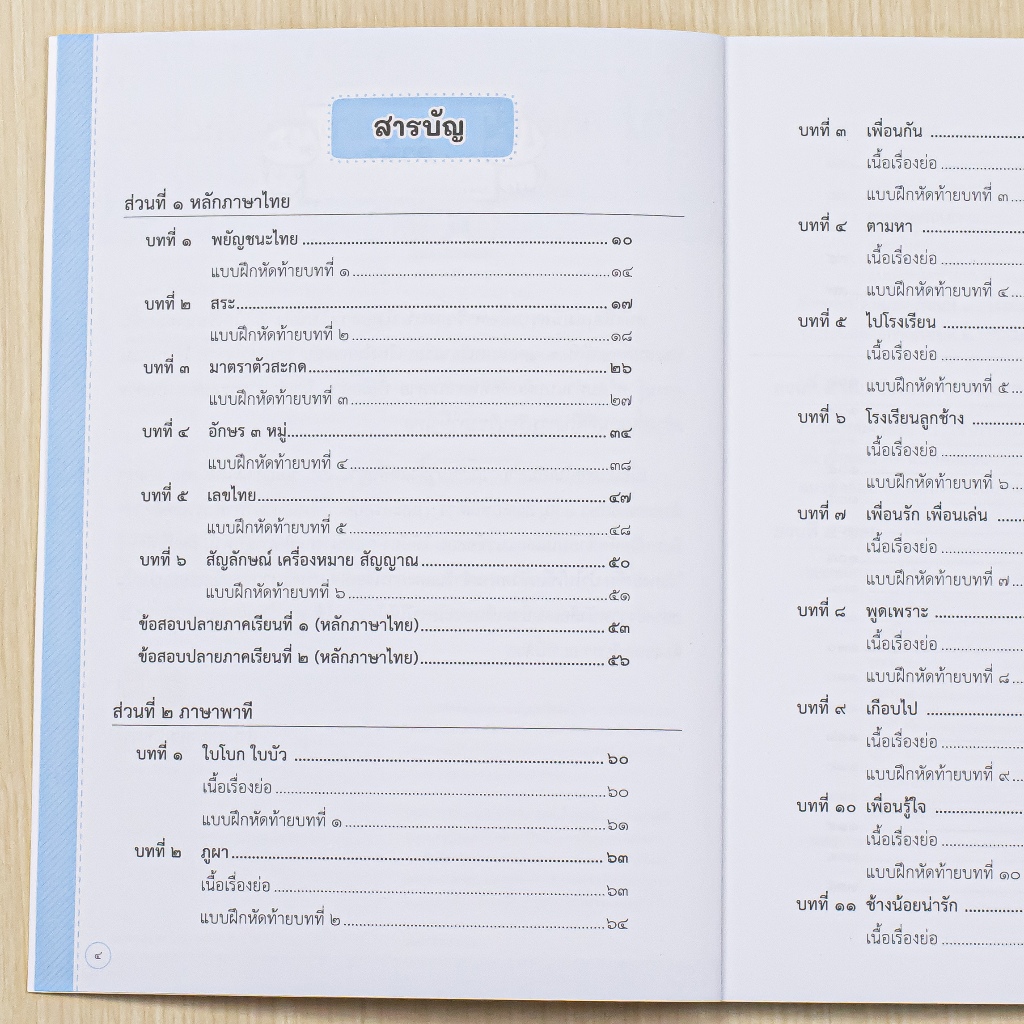 สารบัญ
ส่วนที่ ๑ หลักภาษาไทย
บทที่ ๑ พยัญชนะไทย ........ ๑๐
แบบฝึกหัดท้ายบทที่ ๑ ........ ๑๔
บทที่ ๒ สระ ........ ๑๗
แบบฝึกหัดท้ายบทที่ ๒ ........ ๑๘
บทที่ ๓ มาตราตัวสะกด ........ ๒๖
แบบฝึกหัดท้ายบทที่ ๓ ........ ๒๗
บทที่ ๔ อักษร ๓ หมู่ ........ ๓๔
แบบฝึกหัดท้ายบทที่ ๔ ........ ๓๘
บทที่ ๕ เลขไทย ........ ๔๗
แบบฝึกหัดท้ายบทที่ ๕ ........ ๔๘
บทที่ ๖ สัญลักษณ์ เครื่องหมาย สัญญาณ ........ ๕๐
แบบฝึกหัดท้ายบทที่ ๖ ........ ๕๑
ข้อสอบปลายภาคเรียนที่ ๑ (หลักภาษาไทย) ........ ๕๓
ข้อสอบปลายภาคเรียนที่ ๒ (หลักภาษาไทย) ........ ๕๖
ส่วนที่ ๒ ภาษาพาที
บทที่ ๑ ใบโบก ใบบัว ........ ๖๐
เนื้อเรื่องย่อ ........ ๖๐
แบบฝึกหัดท้ายบทที่ ๑ ........ ๖๑
บทที่ ๒ ภูผา ........ ๖๓
เนื้อเรื่องย่อ ........ ๖๓
แบบฝึกหัดท้ายบทที่ ๒ ........ ๖๔
๔
บทที่ ๓ เพื่อนกัน ........
เนื้อเรื่องย่อ ........
แบบฝึกหัดท้ายบทที่ ๓ ....
บทที่ ๔ ตามหา ........
เนื้อเรื่องย่อ ........
แบบฝึกหัดท้ายบทที่ ๔ ....
บทที่ ๕ ไปโรงเรียน ........
เนื้อเรื่องย่อ ........
แบบฝึกหัดท้ายบทที่ ๕ ....
บทที่ ๖ โรงเรียนลูกช้าง ........
เนื้อเรื่องย่อ ........
แบบฝึกหัดท้ายบทที่ ๖ ....
บทที่ ๗ เพื่อนรัก เพื่อนเล่น ........
เนื้อเรื่องย่อ ........
แบบฝึกหัดท้ายบทที่ ๗ ....
บทที่ ๘ พูดเพราะ ........
เนื้อเรื่องย่อ ........
แบบฝึกหัดท้ายบทที่ ๘ ....
บทที่ ๙ เกือบไป ........
เนื้อเรื่องย่อ ........
แบบฝึกหัดท้ายบทที่ ๙ ....
บทที่ ๑๐ เพื่อนรู้ใจ ........
เนื้อเรื่องย่อ ........
แบบฝึกหัดท้ายบทที่ ๑๐
บทที่ ๑๑ ช้างน้อยน่ารัก ........
เนื้อเรื่องย่อ ........